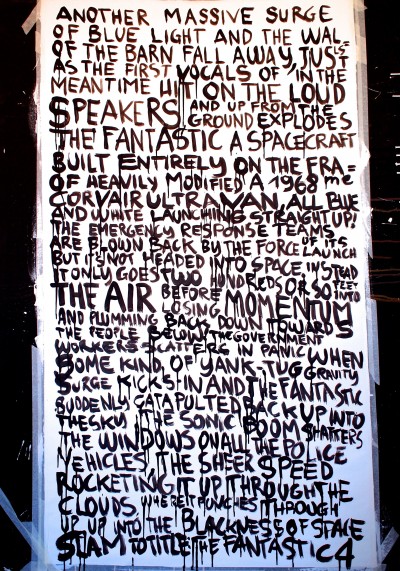 ANOTHER MASSIVE SURGE
OF BLUE LIGHT AND THE WAL-
OF THE BARN FALL AWAY, JUST LS
AS THE FIRST VOCALS OF "IN THE
MEANTIME HIT! ON THE LOUD
SPEAKERS AND UP FROM THE
GROUND EXPLODES
THE FANTASTIC A SPACECRAFT
BUILT ENTIRELY ON THE FRA-
OF HEAVILY MODIFIED A 1968 me
CORVAIR ULTRAVAN, ALL BLUE
AND WHITE LAUNCHING STRAIGHT UP!
THE EMERGENCY RESPONSE TEAMS
ARE BLOWN BACK BY THE FORCE OF ITS LAUNCH
BUT IT'S NOT HEADED INTO SPACE, INSTEAD
IT ONLY GOES TWO HUNDREDS OR SO FEET INTO
THE AIR BEFORE LOSING MOMENTUM
AND PLUMMING BACK DOWN TOWARDS
THE PEOPLE BELOW THE GOVERNMENT
WORKERS SCATTERS IN PANIC WHEN
SOME KIND OF YANK-TUG GRAVITY
SURGE KICKS-IN AND THE FANTASTIC
SUDDENLY CATAPULTED BACK UP INTO
THE SKY THE SONIC BOOM SHATTERS
THE WINDOWS ON ALL THE POLICE
VEHICLES, THE SHEER SPEED
ROCKETING IT UP THROUGH THE
CLOUDS WHERE IT PUNCHES THROUGH
UP UP INTO THE BLACKNESS OF SPACE
SLAM TO TITLE THE FANTASTIC 4